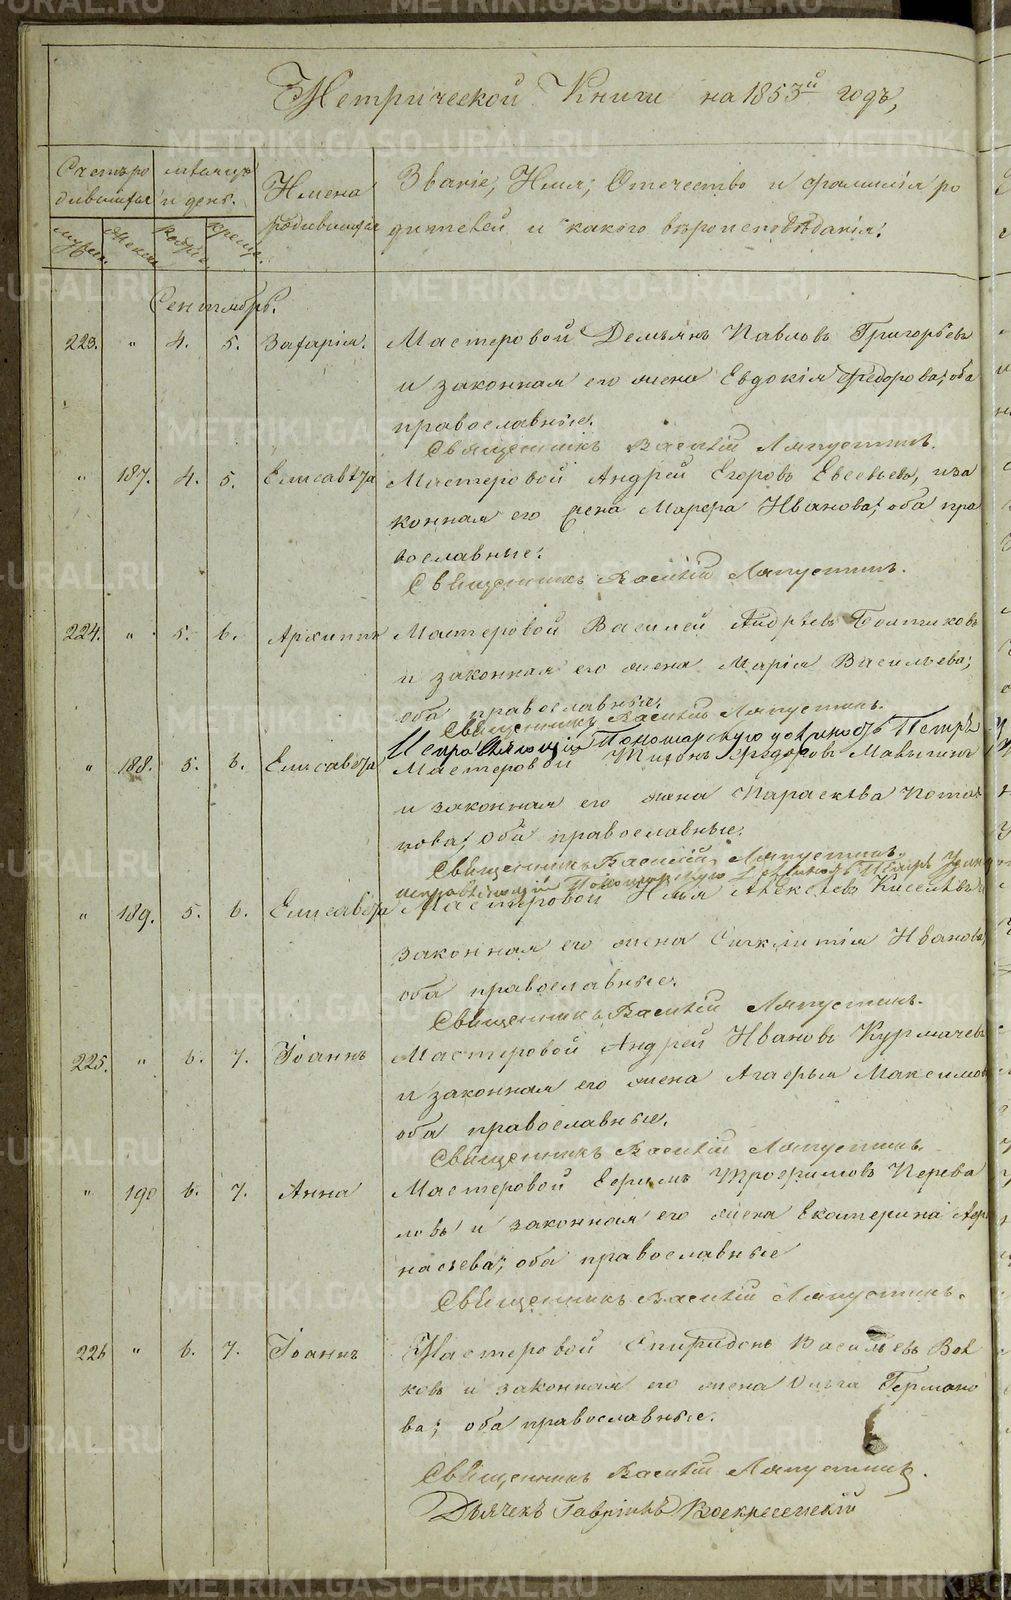 Метрической Книги на 1853й годъ,
Счетъ ро
дившихся
мѣсяцъ
и день.
Имена
родившихся
Званіе, Имя, Отечество и фамилія ро
дителей и какого вѣроисповѣданія.
мужеск.
женск.
рожд.
крещ.
Сентябрь.
223. " 4. 5. Захарія. Мастеровой Демьянъ Павловъ Григорьевъ
и законная его жена Евдокія Федорова; оба
православные.
Священникъ Василій Ляпустинъ.
" 187. 4. 5. Елисавета Мастеровой Андрей Егоровъ Евсевьевъ, и за
конная его жена Марфа Иванова; оба пра
вославные.
Священникъ Василій Ляпустинъ.
224. " 5. 6. Архиппъ Мастеровой Василей Андрѣевъ
и законная его жена Марія Васильева;
оба православные.
Священникъ Василій Ляпустинъ.
Исправляющій Пономарскую должность Петръ
" 188. 5. 6. Елисавета Мастеровой Тихонъ Федоровъ
и законная его жена Параскева Пота
пова; оба православные.
Священникъ Василій Ляпустинъ.
исправляющій Пономарскую должность Петръ
" 189. 5. 6. Елисавета Мастеровой Илья Алексѣевъ Киселевъ и
законная его жена Синклитія Иванова,
оба православные.
Священникъ Василій Ляпустинъ.
225. " 6. 7. Іоаннъ Мастеровой Андрей Ивановъ Курмачевъ
и законная его жена Агафья Максимова
оба православные.
Священникъ Василій Ляпустинъ.
" 190 6. 7. Анна Мастеровой Ефимъ Трофимовъ Перева
ловъ и законная его жена Екатерина Афа
насьева; оба православные
Священникъ Василій Ляпустинъ.
226 " 6. 7. Іоаннъ Мастеровой Спиридонъ Васильевъ Вол
ковъ и законная его жена Ольга Германо
ва; оба православные.
Священникъ Василій Ляпустинъ.
Дьячекъ Гавріилъ Воскресенскій
METRIKI.GASO-URAL.RU